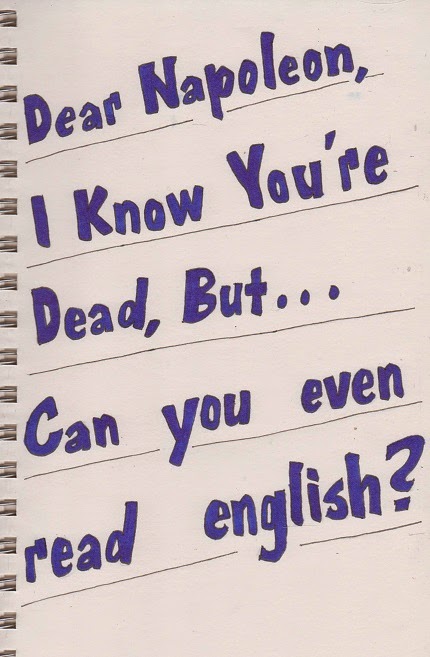 Dear Napoleon,
I Know You're
Dead, But...
Can you even
read english?